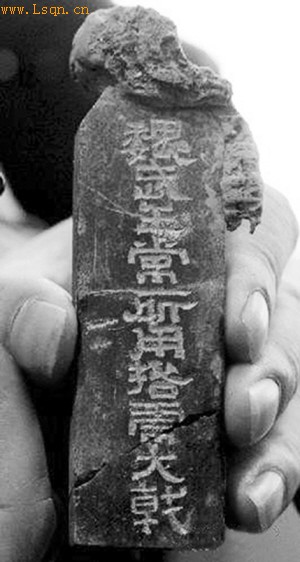 www.Lsqn.cn
魏武王常所用挌虎大戟